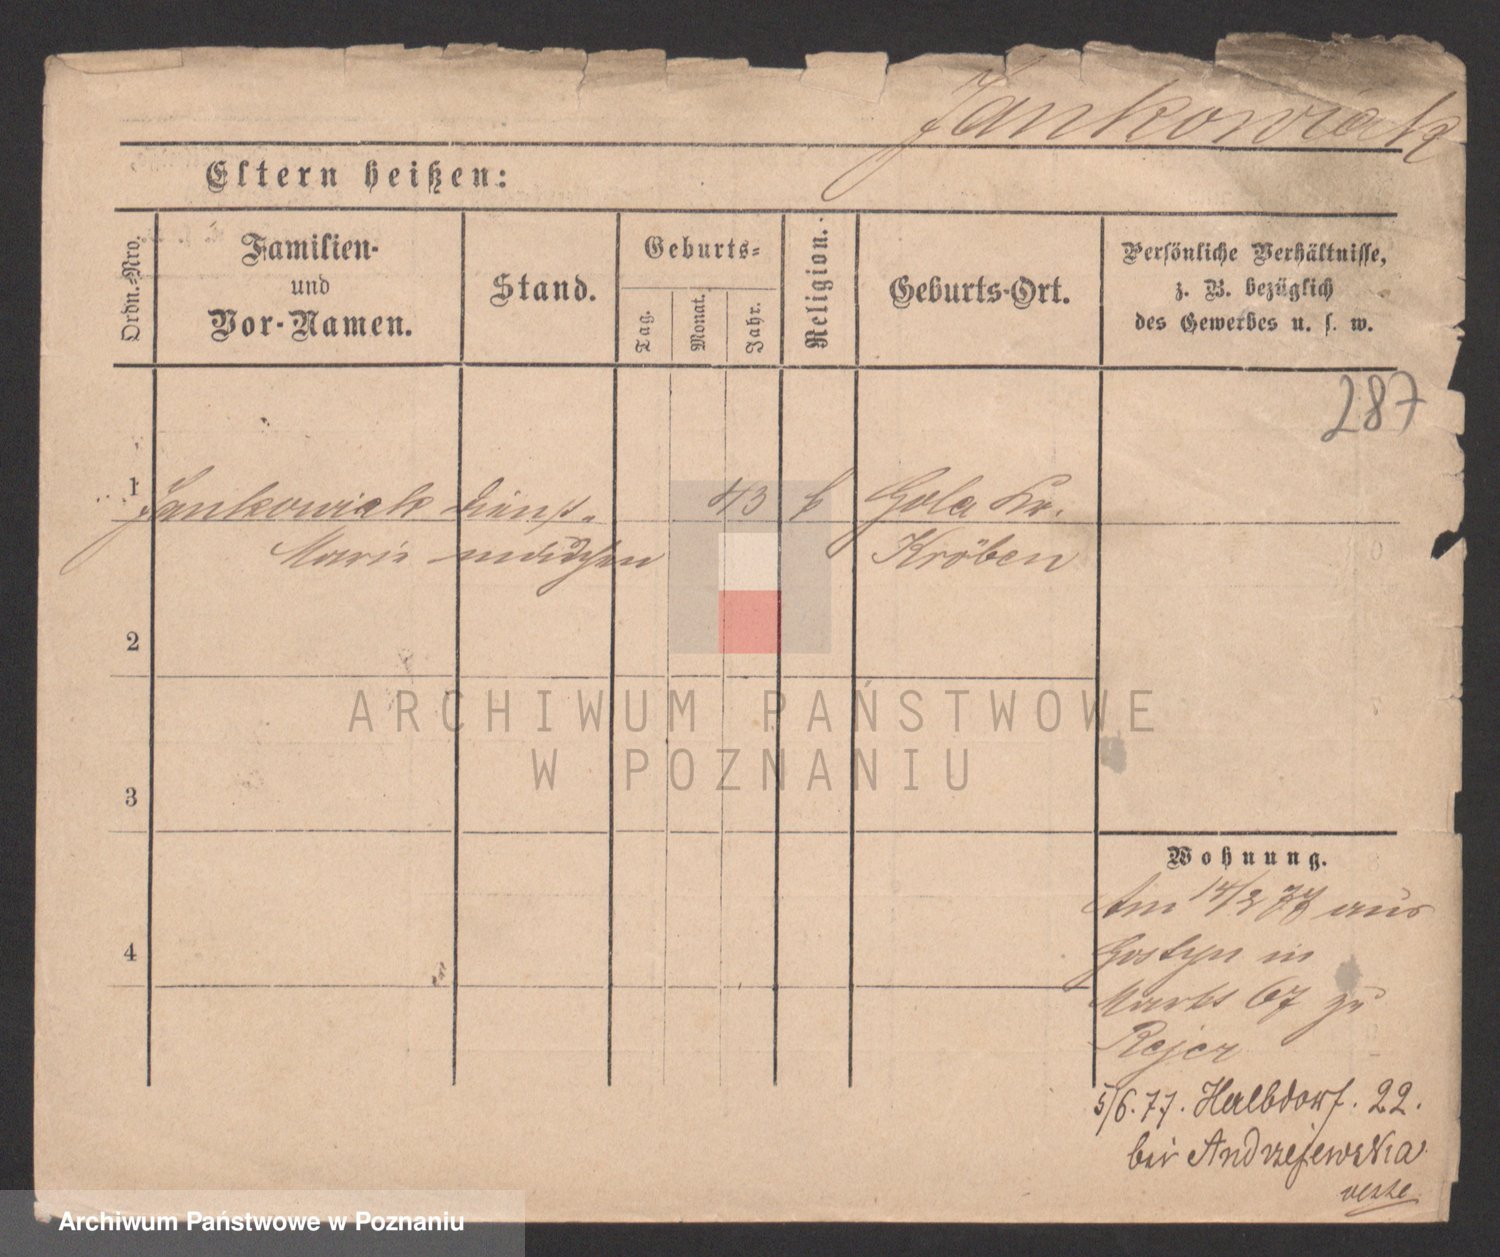 Jankowiak
Eltern heißen:
Ordn.-Nro.
Familien-
und
Vor-Namen.
Stand.
Geburts-
Tag.
Monat.
Jahr.
Religion.
Geburts-Ort.
Persönliche Verhältnisse,
z. B. bezüglich
des Gewerbes u. s. w.
287
1 Jankowiak Dienst- 43 k Gola Kr.
Marie mädchen Kröben
2
3
4
ARCHIWUM PAŃSTWOWE
W POZNANIU
Wohnung.
Am 14/2 77 aus
Gostyn in
Markt 67 zu
Rejer
5/6. 77. Halbdorf. 22.
bei Andrzejewska
verte
Archiwum Państwowe w Poznaniu